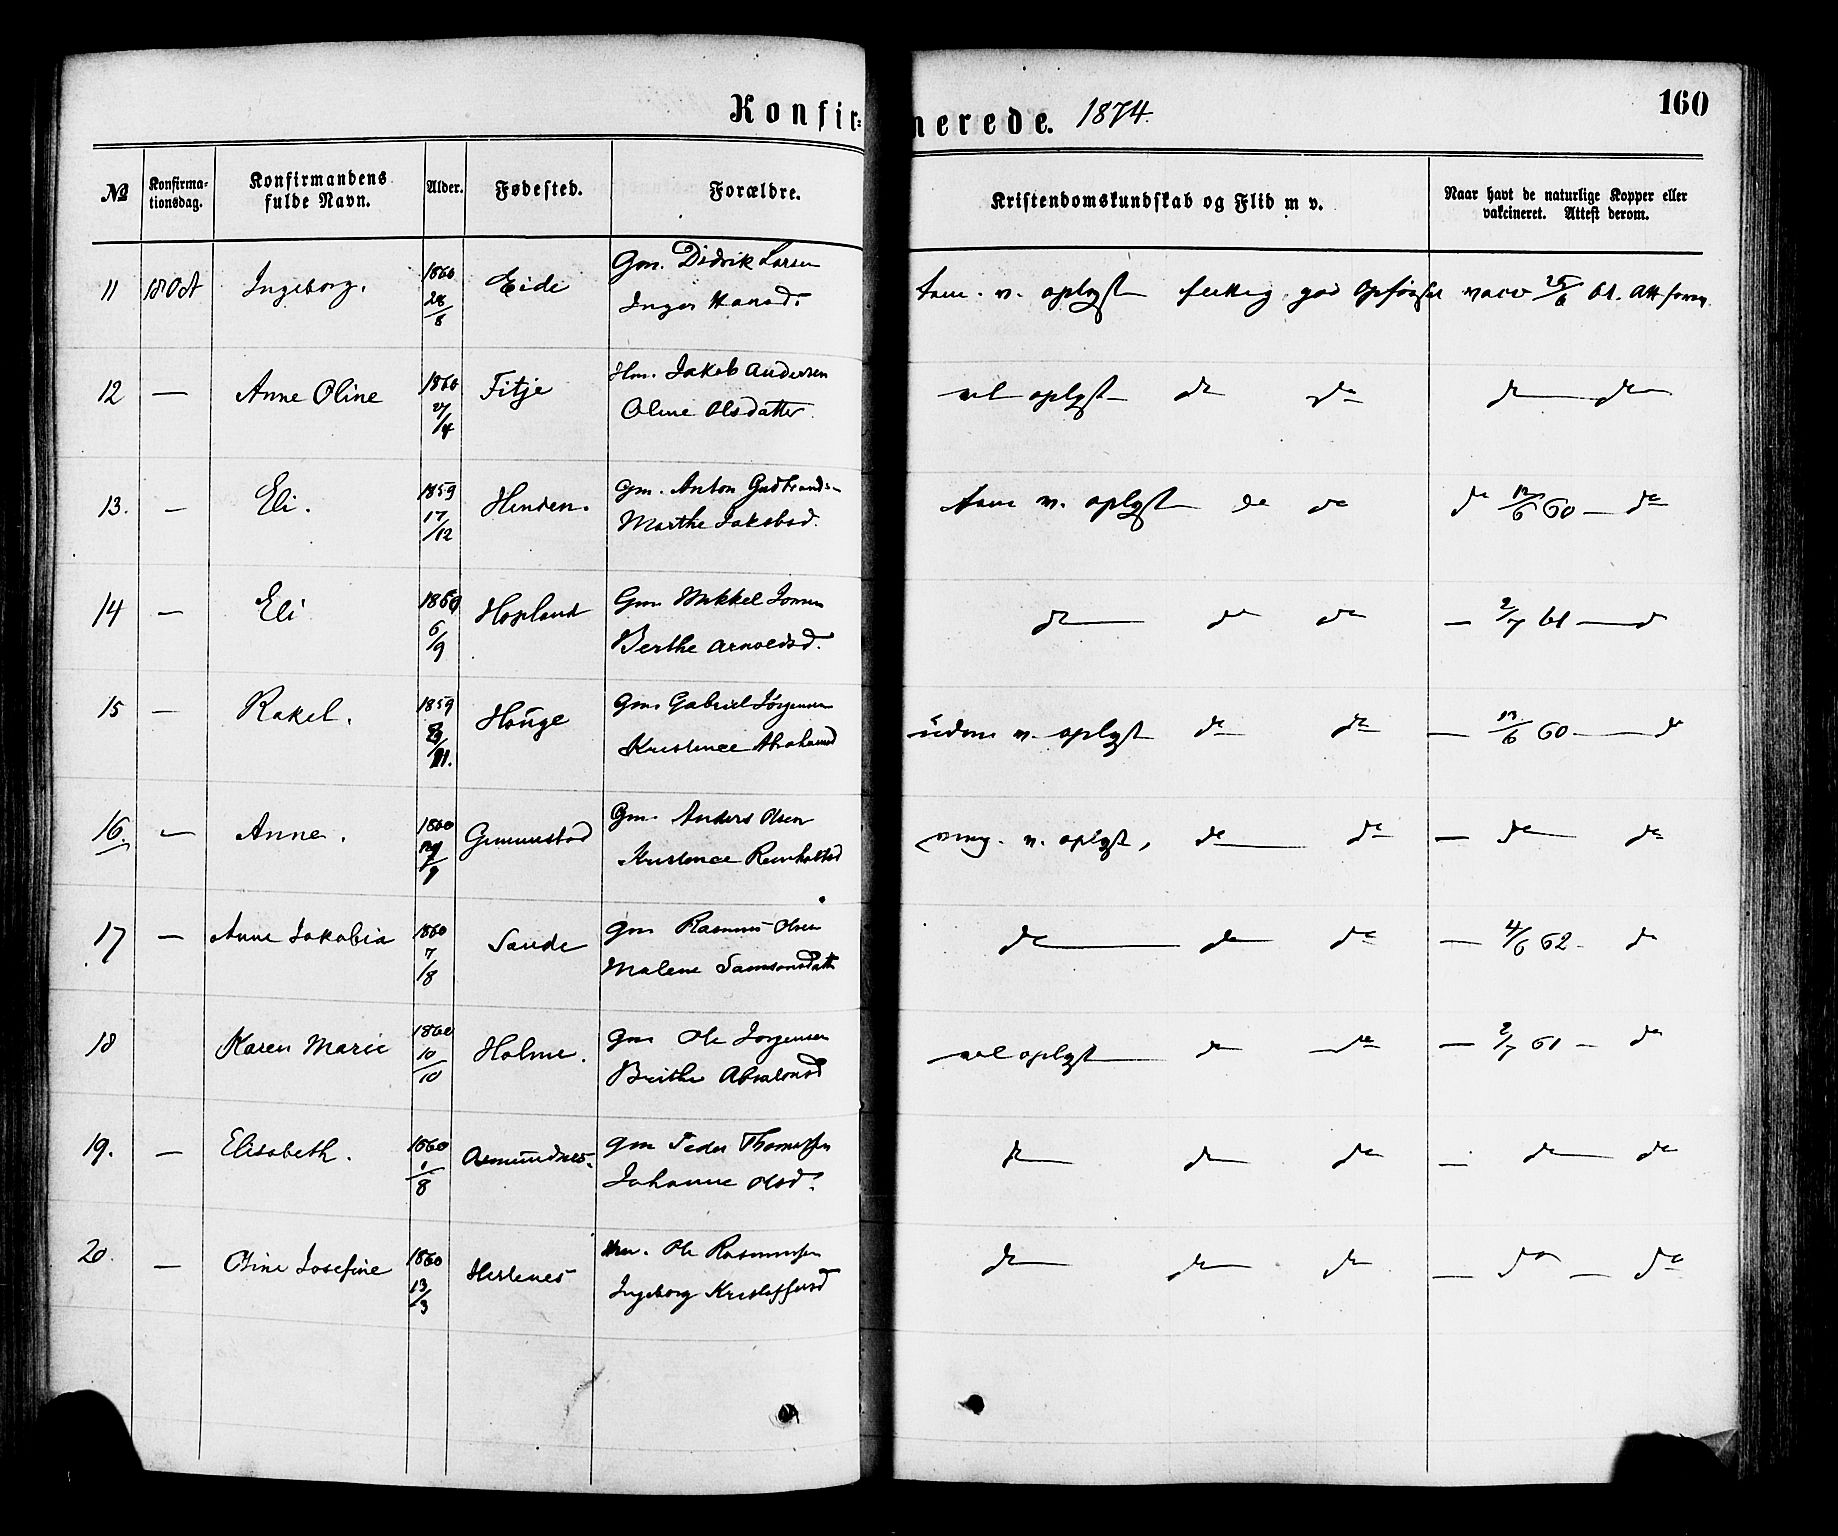 Konfirmerede. 1874.
160
No
Konfirma-
tionsdag.
Konfirmandens
fulde Navn.
Alder.
Fødested.
Forældre.
Kristendomskundskab og Flid m v.
Naar havt de naturlige Kopper eller
vakcineret. Attest derom.
11 18 Oct Ingeborg. 1860 28/8 Eide Gm. Didrik Larsen
Inger Hansd.
tem. v. oplyst flittig god Opførsel vacc 25/6 61. Att
12 — Anne Oline 1860 27/4 Fitje Hm. Jakob Andersen
Oline Olsdatter.
vel oplyst do do do do
13. — Eli. 1859 17/12 Henden. Gm. Anton Gudbrands
Marthe Jakobsd.
tem v. oplyst do do do 12/6 60 — do
14 — Eli 1860 6/9 Hopland Gm Mikkel
Berthe Arnoldsd.
do do do — 2/7 61 — d
15 — Rakel. 1859 Hauge Gm. Gabriel Jørgensen
Kristence Abrahamsd
v. oplyst do do — 12/6 60 — d
16. — Anne. 1860 Gimmestad Gm. Anders Olsen
Kristence Reinholtsd
v. oplyst, do do — do do
17 — Anne Jakobia 1860 7/8 Sande Gm Rasmus Olsen
Malene Samsonsdatt
do do do — 4/6 62 — d
18 Karen Marie 1860 10/10 Holme. Gm Ole Jørgensen
Berthe Absalonsd
vel oplyst do do — 2/7 61 — do
19. — Elisabeth. 1860 1/8 Asmundnes. Gm Peder Thomassen
Johanne Olsd.
do do do — do do
20. — Oline Josefine 1860 13/3 Hestenes Hm. Ole Rasmussen
Ingeborg Kristoffersd
do do do — do — do